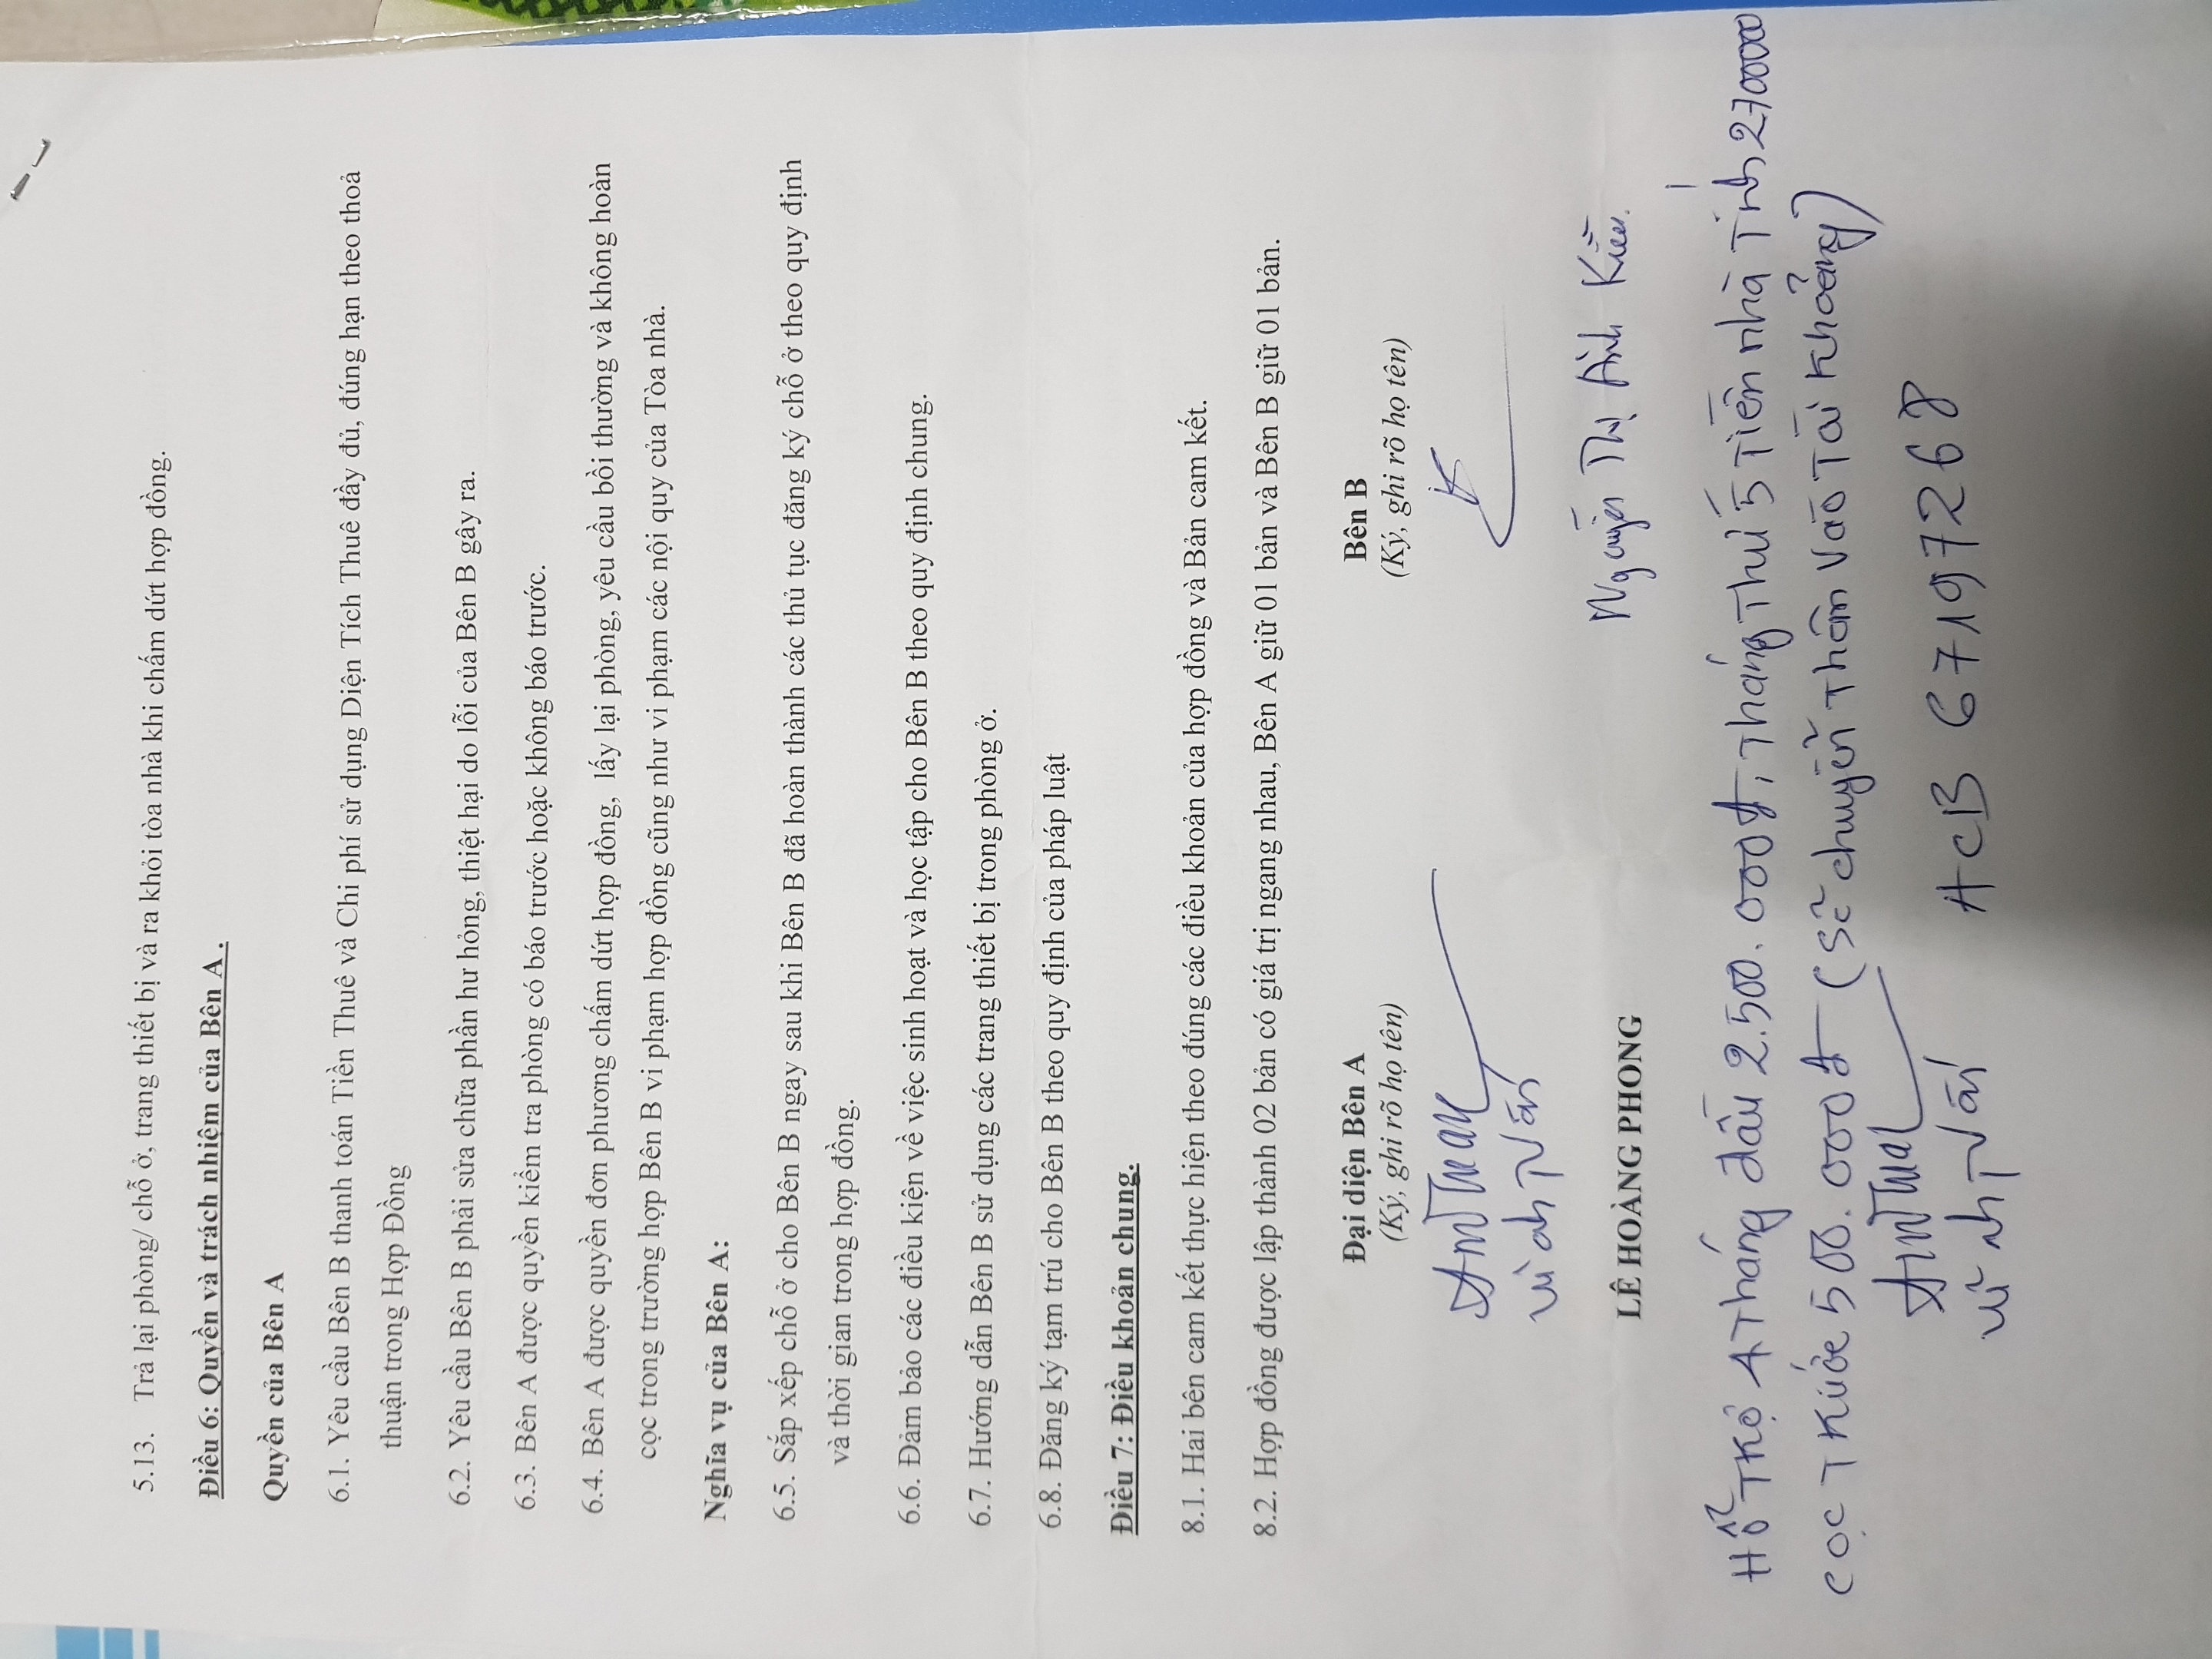 5.13. Trả lại phòng/ chỗ ở, trang thiết bị và ra khỏi tòa nhà khi chấm dứt hợp đồng.
Điều 6: Quyền và trách nhiệm của Bên A.
Quyền của Bên A
6.1. Yêu cầu Bên B thanh toán Tiền Thuê và Chi phí sử dụng Diện Tích Thuê đầy đủ, đúng hạn theo thoả
thuận trong Hợp Đồng
6.2. Yêu cầu Bên B phải sửa chữa phần hư hỏng, thiệt hại do lỗi của Bên B gây ra.
6.3. Bên A được quyền kiểm tra phòng có báo trước hoặc không báo trước.
6.4. Bên A được quyền đơn phương chấm dứt hợp đồng, lấy lại phòng, yêu cầu bồi thường và không hoàn
cọc trong trường hợp Bên B vi phạm hợp đồng cũng như vi phạm các nội quy của Tòa nhà.
Nghĩa vụ của Bên A:
6.5. Sắp xếp chỗ ở cho Bên B ngay sau khi Bên B đã hoàn thành các thủ tục đăng ký chỗ ở theo quy định
và thời gian trong hợp đồng.
6.6. Đảm bảo các điều kiện về việc sinh hoạt và học tập cho Bên B theo quy định chung.
6.7. Hướng dẫn Bên B sử dụng các trang thiết bị trong phòng ở.
6.8. Đăng ký tạm trú cho Bên B theo quy định của pháp luật
Điều 7: Điều khoản chung.
8.1. Hai bên cam kết thực hiện theo đúng các điều khoản của hợp đồng và Bản cam kết.
8.2. Hợp đồng được lập thành 02 bản có giá trị ngang nhau, Bên A giữ 01 bản và Bên B giữ 01 bản.
Đại diện Bên A
(Ký, ghi rõ họ tên)
Bên B
(Ký, ghi rõ họ tên)
LÊ HOÀNG PHONG
Nguyễn Thị Ánh Kiều.
Hỗ Trợ 4 Tháng đầu 2.500.000đ, Tháng Thứ 5 Tiền nhà Tính 2700000
Cọc Trước 500.000đ (sẽ chuyển Thêm vào Tài khoảng)
ACB 67197268